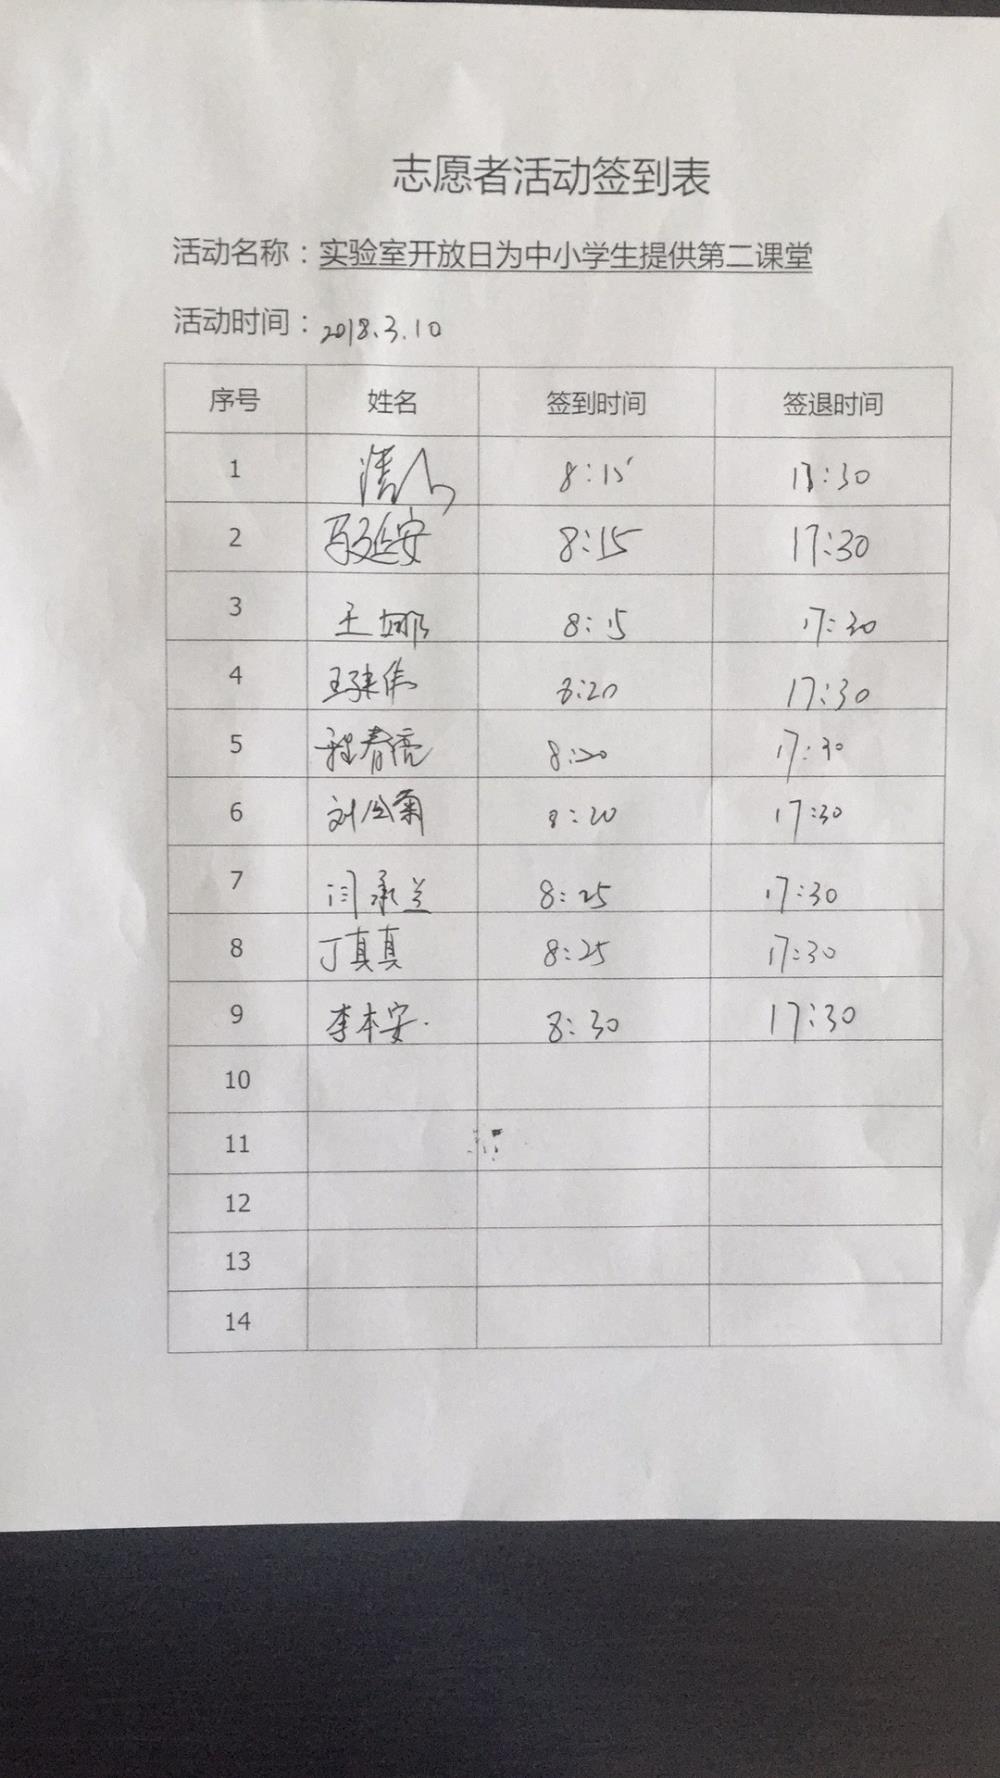 志愿者活动签到表
活动名称：实验室开放日为中小学生提供第二课堂
活动时间：2018.3.10
序号 姓名 签到时间 签退时间
1 8:15 17:30
2 马延安 8:15 17:30
3 王娜 8:15 17:30
4 王建伟 8:20 17:30
5 程春亮 8:20 17:30
6 刘金菊 8:20 17:30
7 闫承兰 8:25 17:30
8 丁真真 8:25 17:30
9 李本安 8:30 17:30
10
11
12
13
14